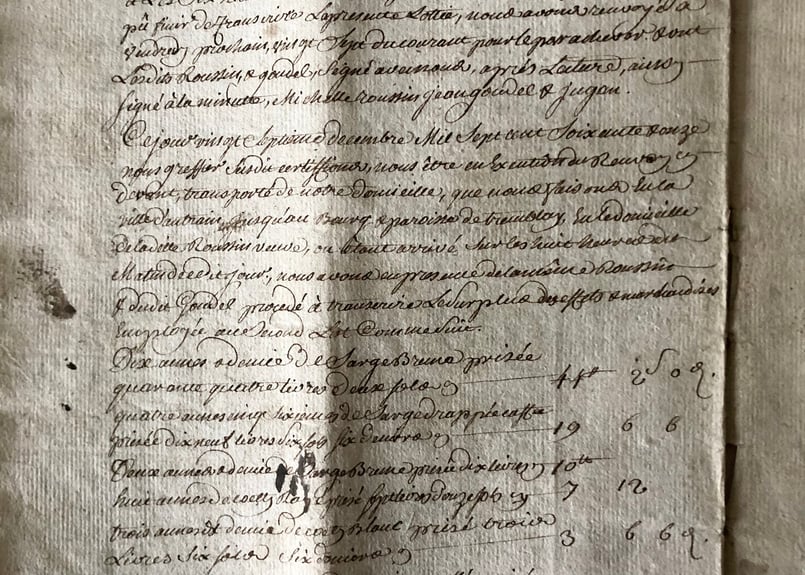 pû finir de transcrire La presente Lottie, nous avons renvoyé a
vendredy prochain, vingt Sept du courant pour le paradever & ont
Lesdits Roussin, & gaudel, Signé avec nous, apres Lecture, ainsy
signé à la minutte, Michelle roussin jean gaudel & jugan.
Ce jour vingt Sept decembre Mil Sept cent Soixante & onze
nous greffier Susdit certiffions, nous être en Execution du Renvoy cy
devant, transporté de notre domicille, que nous faisons En la
ville d'antrain, jusqu'au Bourg & paroisse de tremblay, En le domicille
de laditte Roussin veuve, ou Etant arrivé Sur les huit heures du
Matin de cedit jour, nous avons en presence de la même Roussin
& dudit Gaudel procedé à transcrire Le Surplus des effets & marchandises
Employée au Second Lot Comme Suit.
Dix aunes & demie de Sarge Brune prisée
quarante quatre livres deux sols 44tt 2s 0d.
quatre aunes cinq Sixiemes de Sarge drappée
prisée dix neuf livres Six sols Six deniers 19 6 6
Deux aunes & demie de Sarge Brune prisé dix livres 10tt
huit aunes de prisé sept livres douze sols cy 7 12
trois aunes & demie de Blanc prisé trois
Livres Six sols Six deniers 3 6 6d.